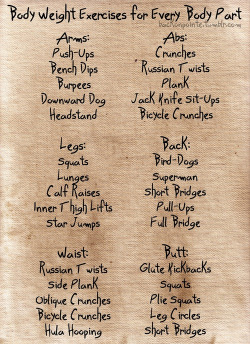 Body Weight Exercises for Every Body Part
backonpointe.tumblr.com
Arms:
Push-Ups
Bench Dips
Burpees
Downward Dog
Headstand
Abs:
Crunches
Russian Twists
Plank
Jack Knife Sit-Ups
Bicycle Crunches
Legs:
Squats
Lunges
Calf Raises
Inner Thigh Lifts
Star Jumps
Back:
Bird-Dogs
Superman
Short Bridges
Pull-Ups
Full Bridge
Waist:
Russian Twists
Side Plank
Oblique Crunches
Bicycle Crunches
Hula Hooping
Butt:
Glute Kickbacks
Squats
Plie Squats
Leg Circles
Short Bridges